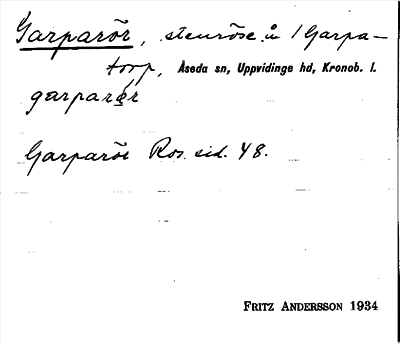 Garparör, stenröse å 1 Garpa-
torp, Åseda sn, Uppvidinge hd, Kronob. l.
garparǿr
Garparör Ros. sid. 48.
FRITZ ANDERSSON 1934